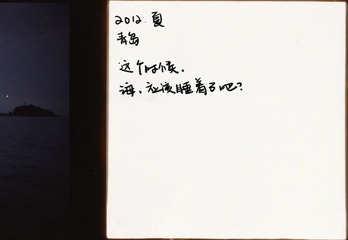 2012.夏
青岛
这个时候，
海，应该睡着了吧？